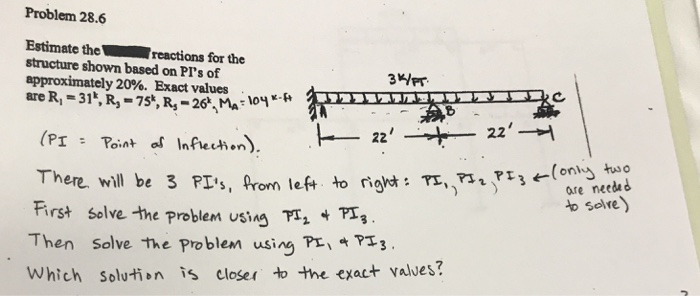 Problem 28.6
Estimate the reactions for the
structure shown based on PI's of
approximately 20%. Exact values
are R₁ = 31ᵏ, R₃ = 75ᵏ, R₅ = 26ᵏ, M_A = 104 k-ft
3 K/FT.
A
B
C
22'
22'
(PI = Point of Inflection).
There will be 3 PI's, from left to right: PI₁, PI₂, PI₃ ← (only two
are needed
to solve)
First solve the problem using PI₂ & PI₃.
Then solve the problem using PI₁ & PI₃.
Which solution is closer to the exact values?